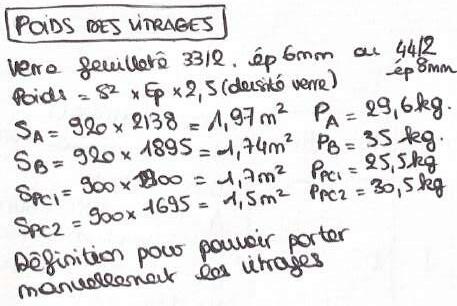 POIDS DES VITRAGES
Verre feuilleté 33/2. ép 6mm ou 44/2 ép 8mm
Poids = S² × Ep × 2,5 (densité verre)
SA = 920 × 2138 = 1,97m² PA = 29,6kg.
SB = 920 × 1895 = 1,74m² PB = 35 kg.
SPC1 = 900 × 1900 = 1,7m² PPC1 = 25,5kg
SPC2 = 900 × 1695 = 1,5m² PPC2 = 30,5kg
Définition pour pouvoir porter
manuellement les vitrages